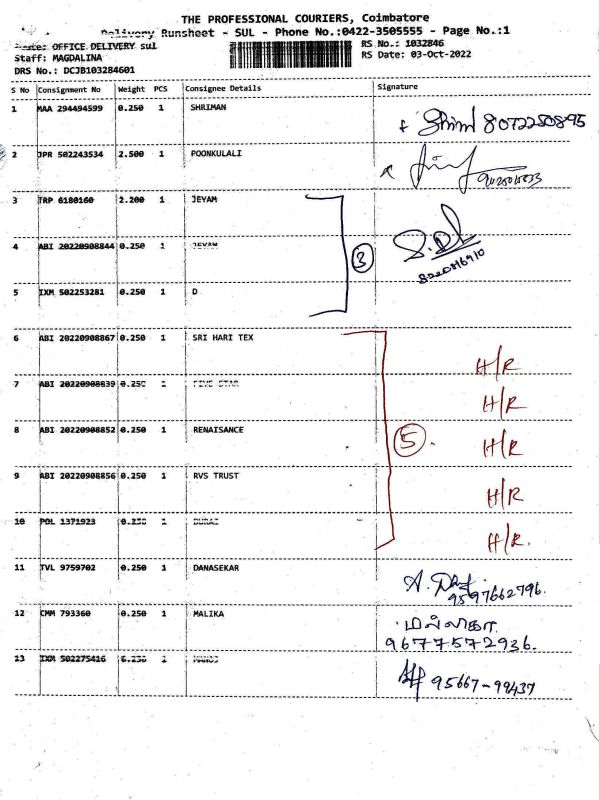 THE PROFESSIONAL COURIERS, Coimbatore
Delivery Runsheet - SUL - Phone No.:0422-3505555 - Page No.:1
OFFICE DELIVERY sul
RS No.: 1032846
Staff: MAGDALINA
RS Date: 03-Oct-2022
DRS No.: DCJB103284601
S No Consignment No Weight PCS Consignee Details Signature
1 MAA 294494599 0.250 1 SHRIMAN
8072250895
2 JPR 502243534 2.500 1 POONKULALI
3 TRP 6180160 2.200 1 JEYAM
4 ABI 20220908844 0.250 1 JEYAM
3
5 IXM 502253281 0.250 1 D
6 ABI 20220908867 0.250 1 SRI HARI TEX H/R
7 ABI 20220908839 0.250 1 FIVE STAR H/R
8 ABI 20220908852 0.250 1 RENAISANCE 5 H/R
9 ABI 20220908856 0.250 1 RVS TRUST H/R
10 POL 1371923 0.250 1 H/R.
11 TVL 9759702 0.250 1 DANASEKAR
9597662796.
12 CMM 793360 0.250 1 MALIKA மல்லிகா
9677572936.
13 IXM 502275416 1
95667-99437